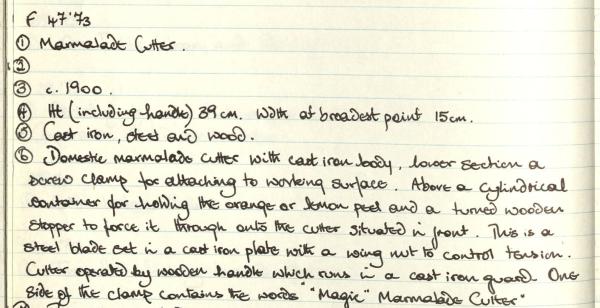 F 47'73
① Marmalade Cutter.
②
③ c. 1900.
④ Ht (including handle) 39 cm. Width at broadest point 15 cm.
⑤ Cast iron, steel and wood.
⑥ Domestic marmalade cutter with cast iron body, lower section a
screw clamp for attaching to working surface. Above a cylindrical
container for holding the orange or lemon peel and a turned wooden
stopper to force it through onto the cutter situated in front. This is a
steel blade set in a cast iron plate with a wing nut to control tension.
Cutter operated by wooden handle which runs in a cast iron guard. One
side of the clamp contains the words "Magic" Marmalade Cutter"